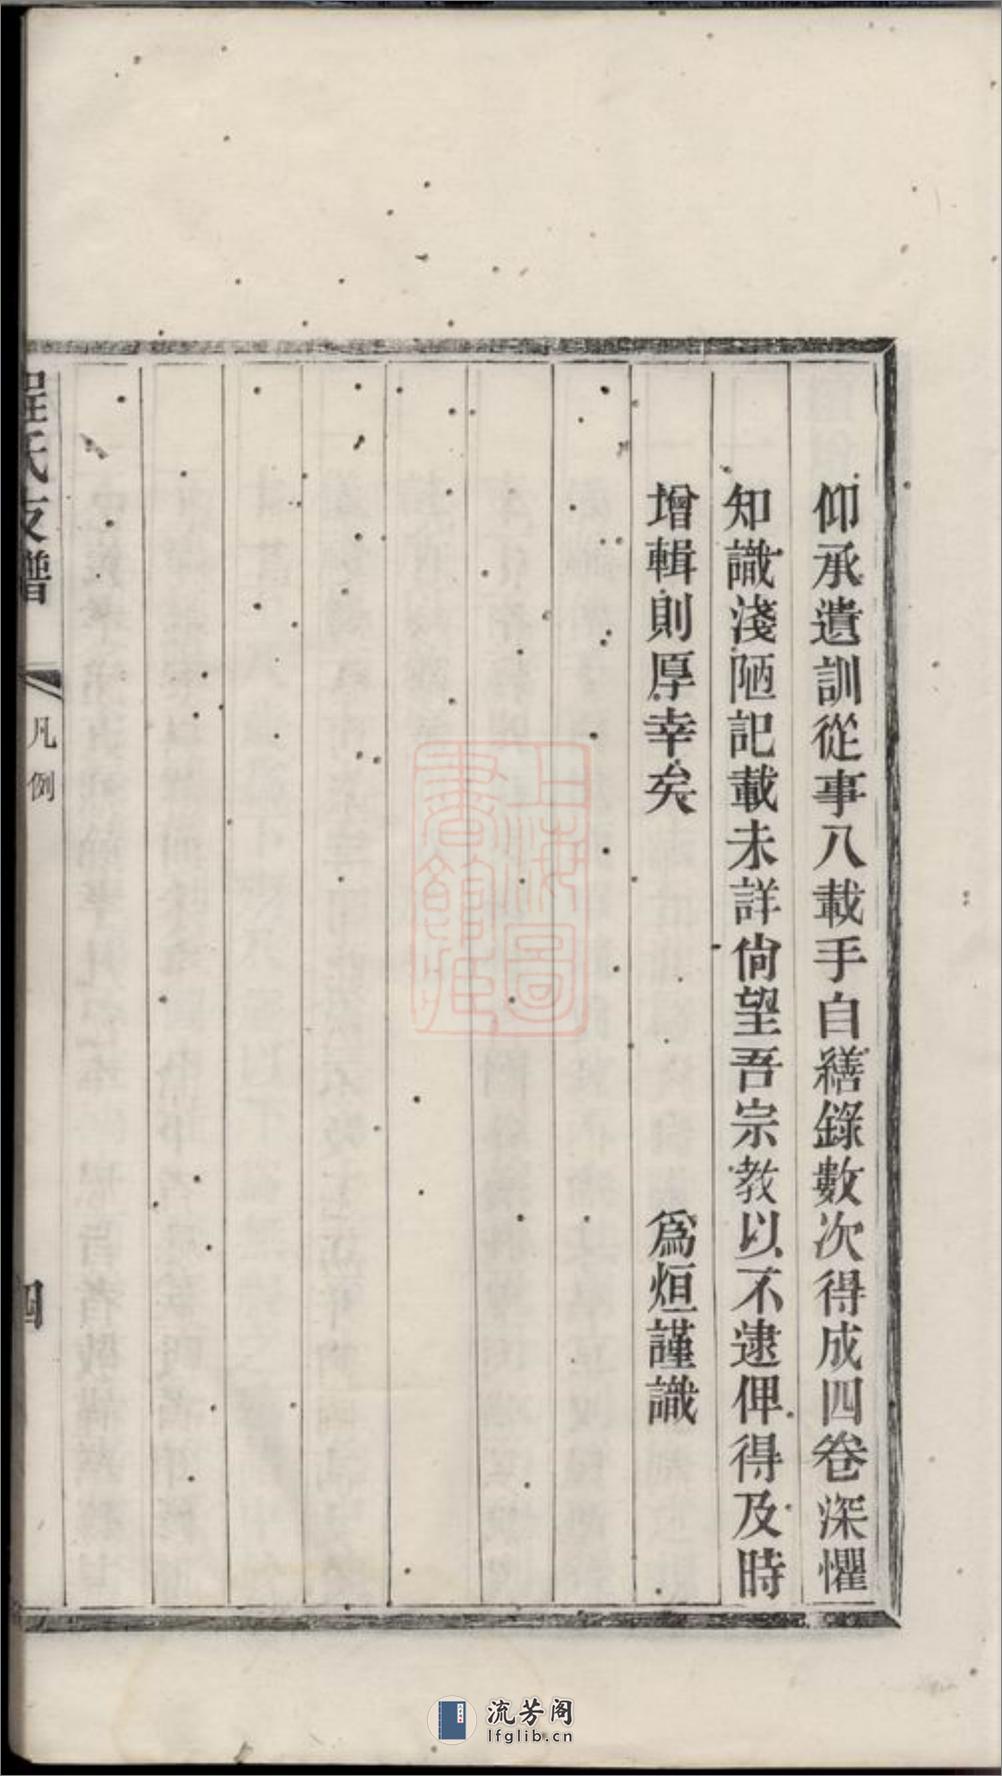 仰承遺訓從事八載手自繕錄數次得成四卷深懼
知識淺陋記載未詳尙望吾宗教以不逮俾得及時
增輯則厚幸矣
爲烜謹識
程氏支譜
凡例
四
上海圖書館藏
流芳阁
lfglib.cn